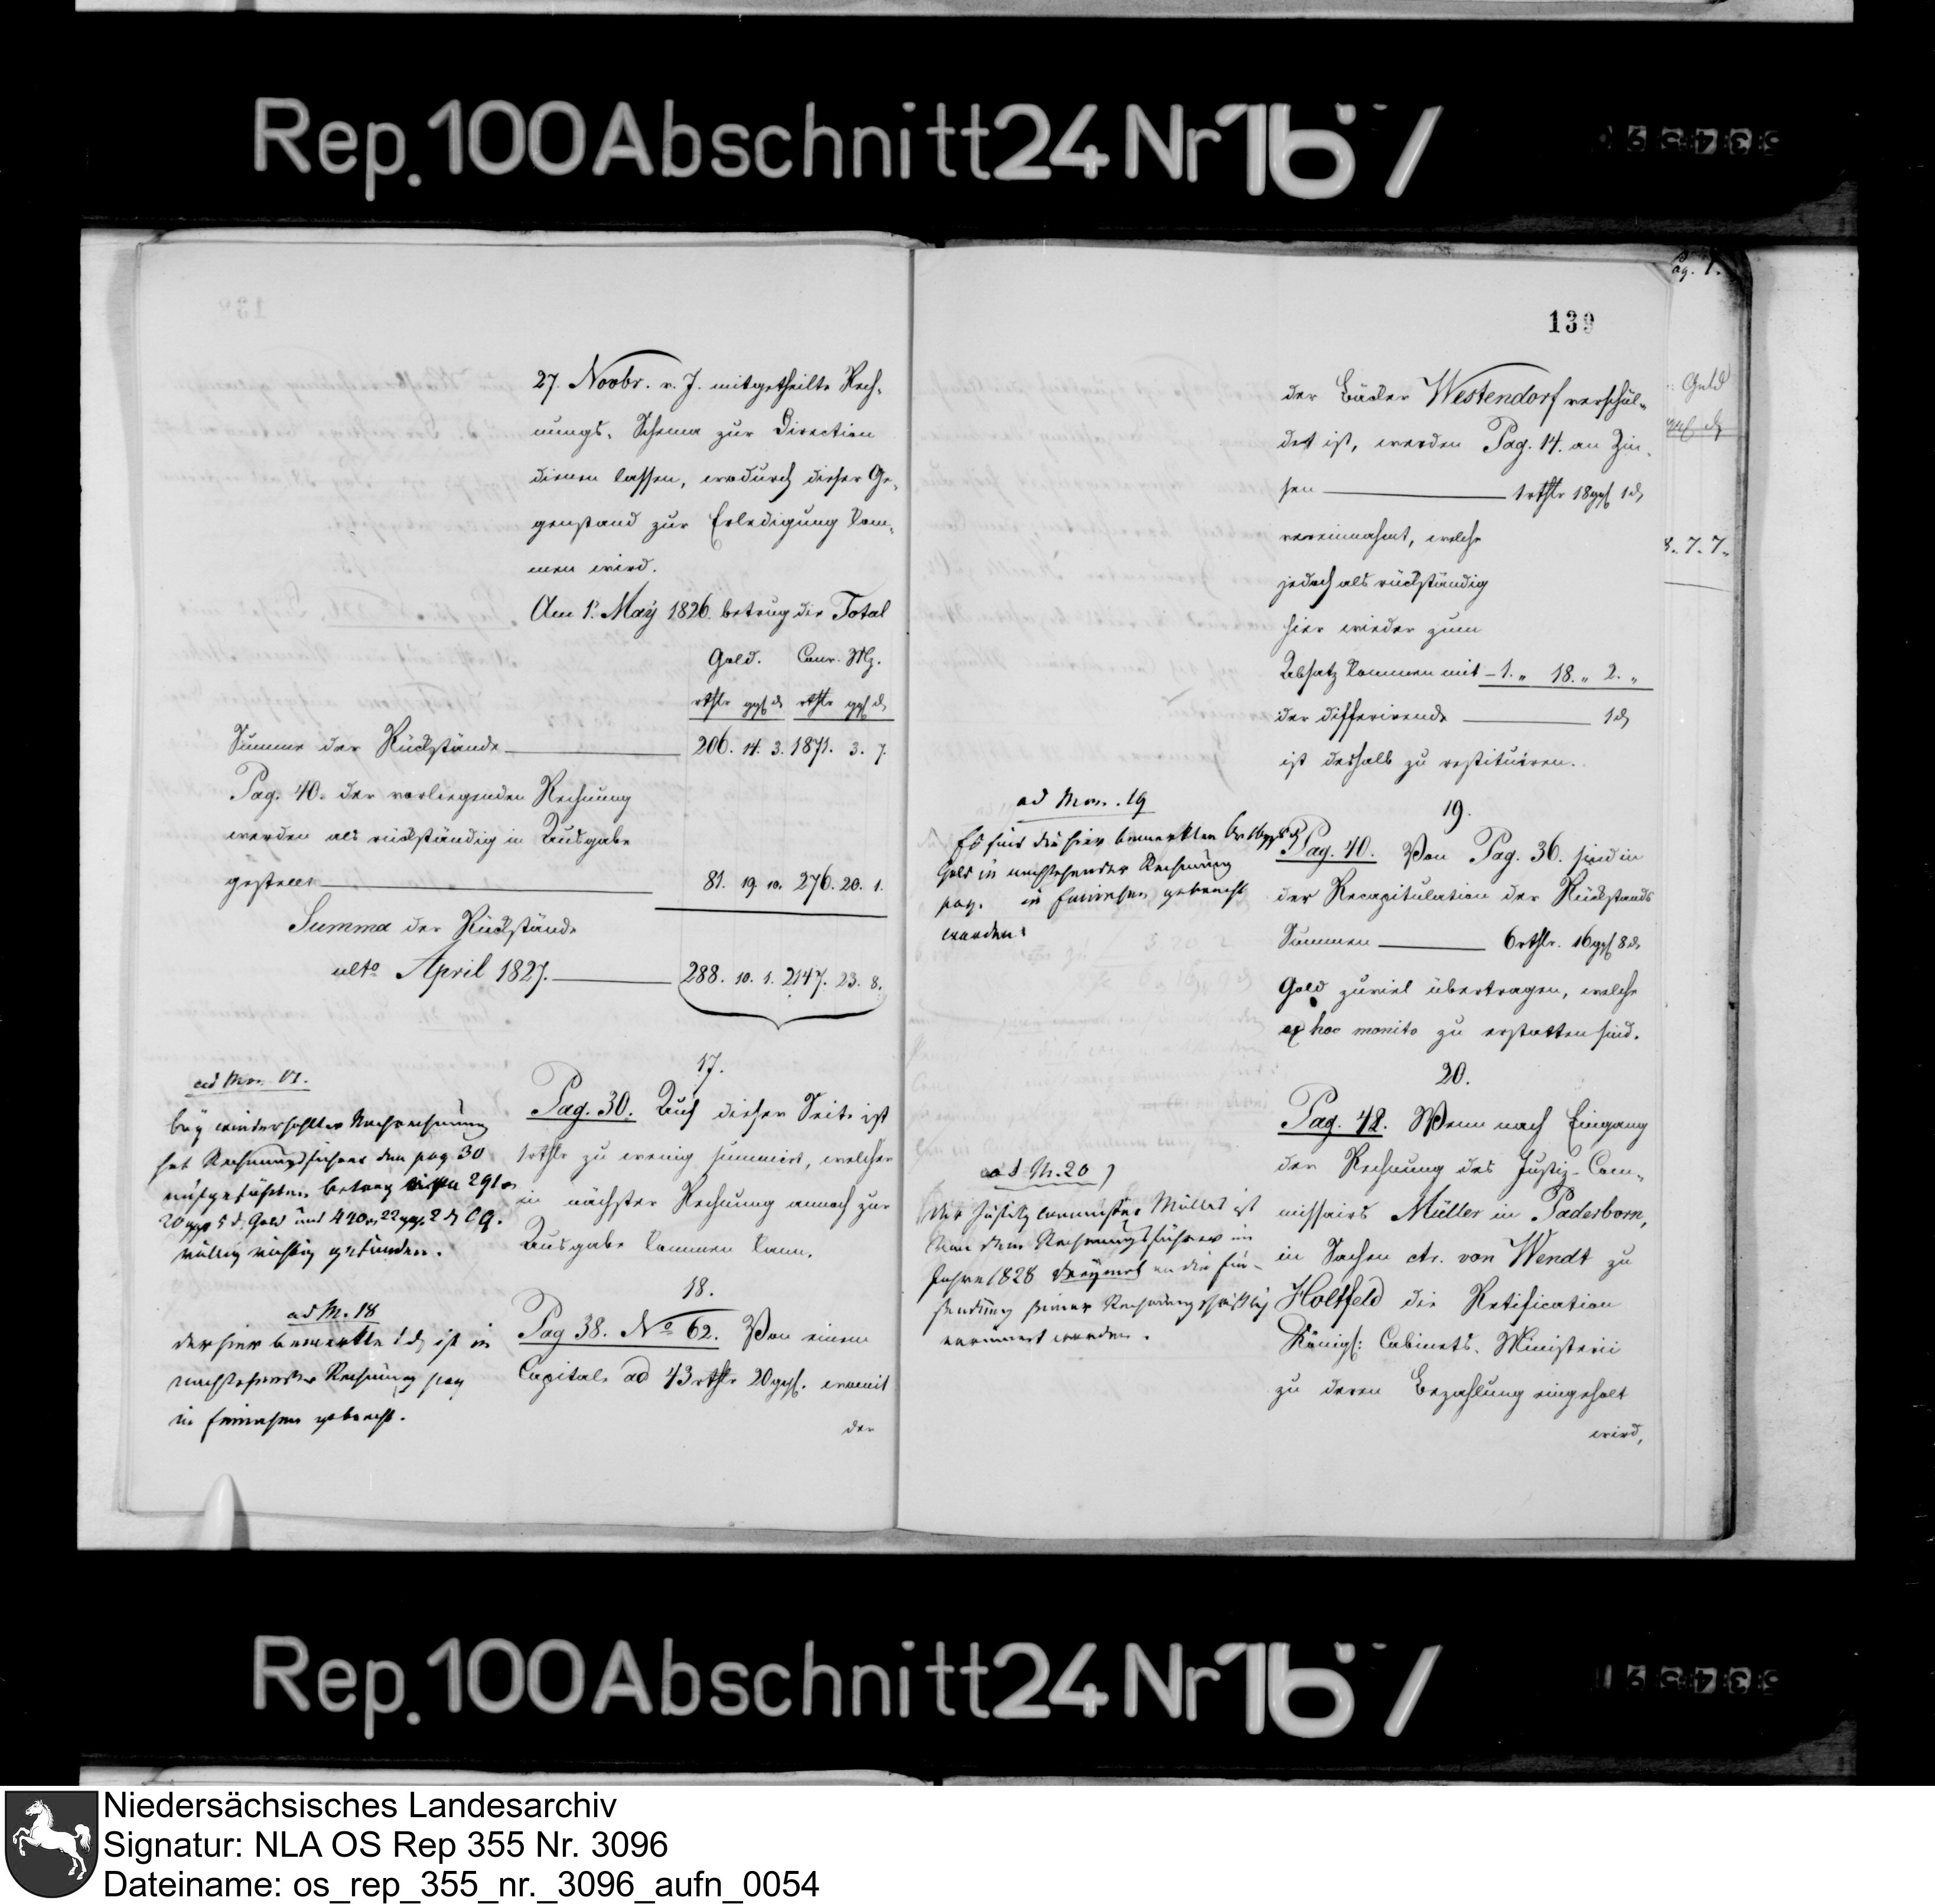 Rep. 100 Abschnitt 24 Nr 167
27. Novbr. v. J. mitgetheilte Rech-
nungs-Schema zur Direction
dienen lassen, wodurch dieser Ge-
genstand zur Erledigung kom-
men wird.
Am 1. May 1826. betrug die Total
Gold. Conv. Mz.
rthlr ggl ₰ rthlr ggl ₰
Summe der Rückstände 206. 14. 3. 1871. 3. 7.
Pag. 40. der vorliegenden Rechnung
werden als rückständig in Ausgabe
gestellt 81. 19. 10. 276. 20. 1.
Summa der Rückstände
ulto April 1827. 288. 10. 1. 2147. 23. 8.
17.
Pag. 30. Auf dieser Seite ist
1 rthlr zu wenig summirt, welcher
in nächster Rechnung annoch zur
Ausgabe kommen kann.
18.
Pag 38. No 62. Von einem
Capitale ad 43 rthlr 20 ggl. womit
der
ad Mon. 17.
bey wiederhohlter Nachrechnung
hat Rechnungsführer den pag 30
aufgeführten Betrag 291
20 ggr 5 d. Gold und 440 22 ggr 2 ₰
völlig richtig gefunden.
ad M. 18
der hier bemerkte 1 ₰ ist in
nachstehender Rechnung pag
in Einnahme gebracht.
139
der Bäcker Westendorf verschul-
det ist, werden Pag. 14. an Zin-
sen 1 rthlr 18 ggl 1 ₰
vereinnahmt, welche
jedoch als rückständig
hier wieder zum
Absatz kommen mit 1. " 18. " 2. "
der differirende 1 ₰
ist deshalb zu restituiren.
19.
Pag. 40. Von Pag. 36. sind in
der Recapitulation der Rückstands
Summen 6 rthlr. 16 ggl 8 ₰
Gold zuviel übertragen, welche
ex hoc monito zu erstatten sind.
20.
Pag. 42. Wenn nach Eingang
der Rechnung des Justiz-Com-
missairs Müller in Paderborn,
in Sachen ctr. von Wendt zu
Holtfeld die Ratification
Königl: Cabinets-Ministerii
zu deren Bezahlung eingeholt
wird,
ad Mon. 19
Es sind die hier bemerkten 6 16 ggr 8 ₰
Gold in nachstehender Rechnung
pag. in Einnahme gebracht
worden.
ad M. 20
Der Justiz Müller ist
von dem Rechnungsführer im
Jahre 1828 dreymal an die Ein-
sendung seiner Rechnung schriftlich
erinnert worden.
Pag. 7.
Gold
ggl ₰
8. 7. 7.
Rep. 100 Abschnitt 24 Nr 167
Niedersächsisches Landesarchiv
Signatur: NLA OS Rep 355 Nr. 3096
Dateiname: os_rep_355_nr._3096_aufn_0054